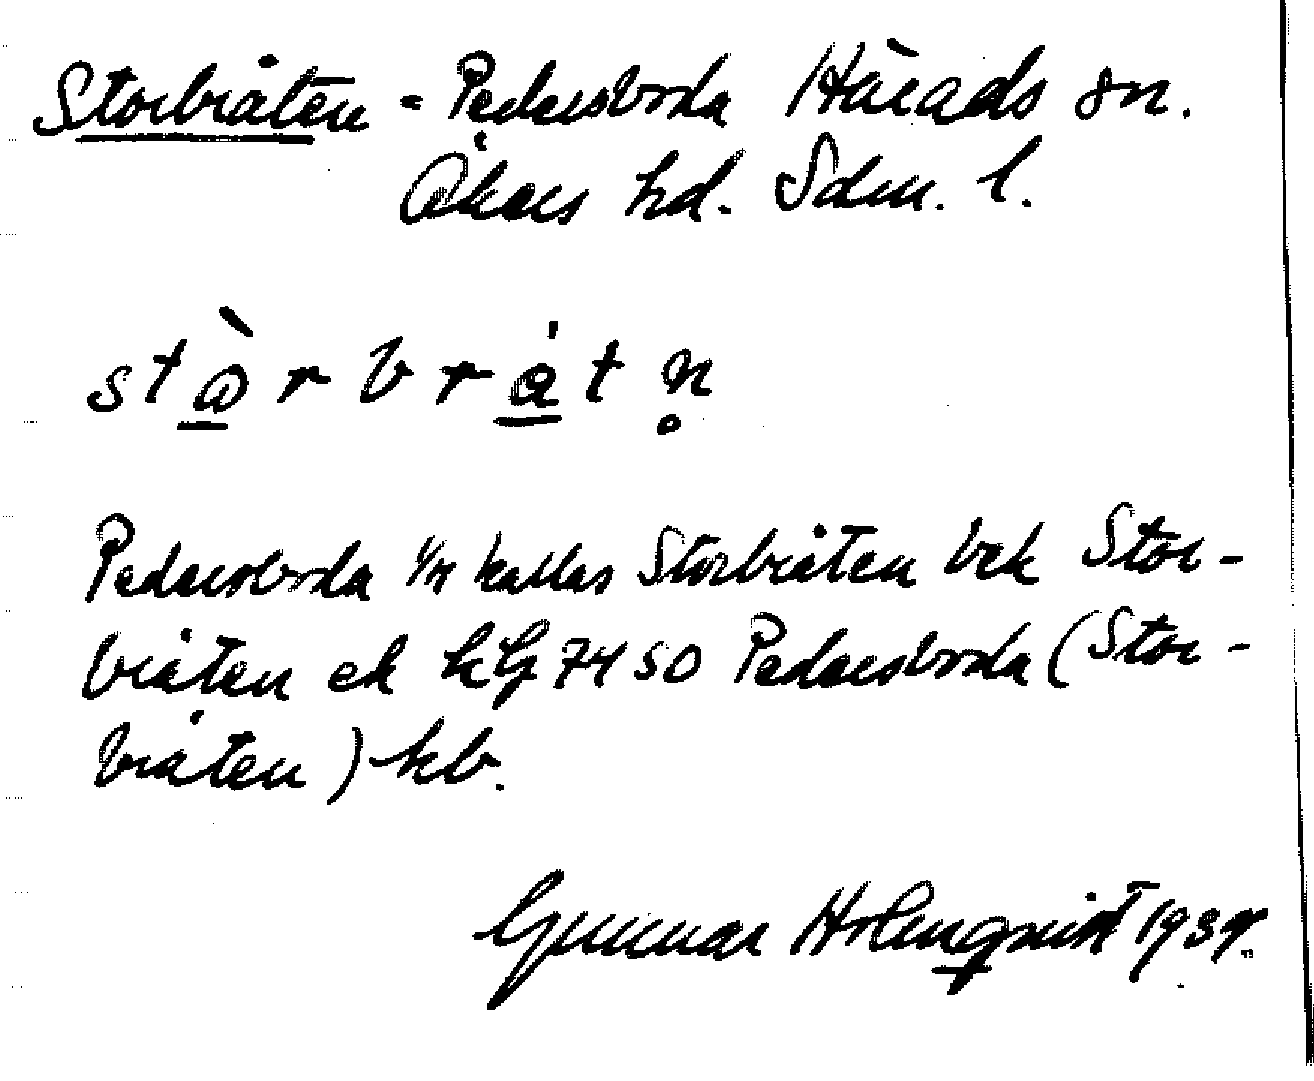 Storbråten = Pedersboda Härads sn.
Åkers hd. Sdm. l.
stàrbrátn̥
Pedersboda 1/m kallas Storbråten bek Stor-
bråten ek hG 7450 Pedersboda (Stor-
bråten) kb.
Gunnar Holmqvist 1939.